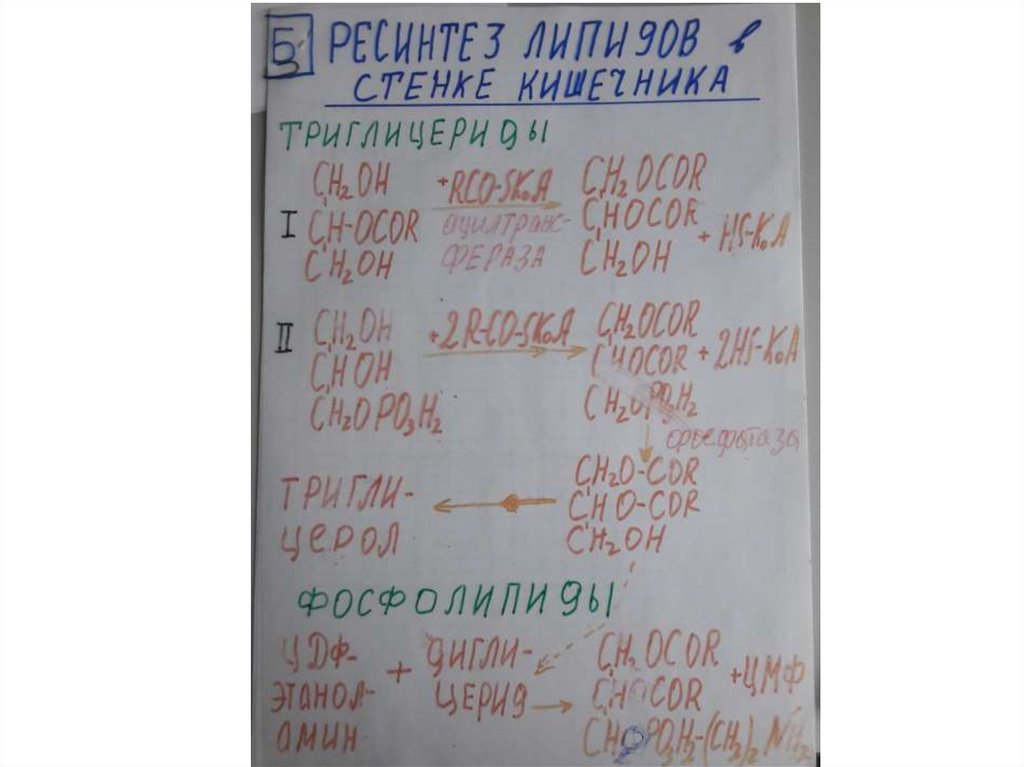 Б РЕСИНТЕЗ ЛИПИДОВ в
СТЕНКЕ КИШЕЧНИКА
ТРИГЛИЦЕРИДЫ
I
CH2OH
CH-OCOR
CH2OH
+RCO-SKoA
ацилтранс-
ФЕРАЗА
CH2OCOR
CHOCOR
CH2OH
+ HS-KoA
II
CH2OH
CHOH
CH2OPO3H2
+2R-CO-SKoA
CH2OCOR
CHOCOR
CH2OPO3H2
+ 2HS-KoA
фосфатаза
CH2O-COR
CHO-COR
CH2OH
ТРИГЛИ-
ЦЕРОЛ
ФОСФОЛИПИДЫ
ЦДФ-
ЭТАНОЛ-
АМИН
+
ДИГЛИ-
ЦЕРИД
CH2OCOR
CHOCOR
+ЦМФ